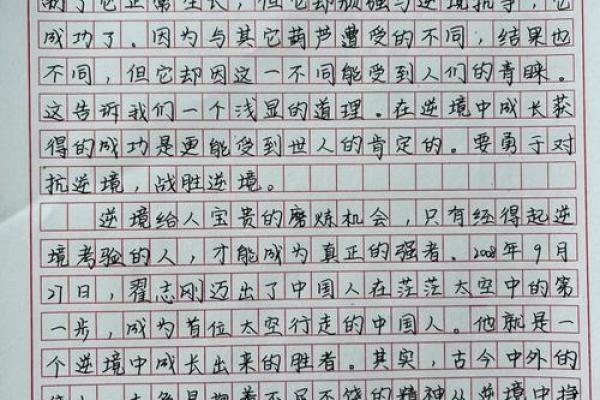 制了它正常生长，但它却顽强与逆境抗争，它
成功了。因为与其它葫芦遭受的不同，结果也
不同，但它却因这一不同能受到人们的青睐。
这告诉我们一个浅显的道理。在逆境中成长获
得的成功是更能受到世人的肯定的。要勇于对
抗逆境，战胜逆境。
逆境给人宝贵的磨炼机会，只有经得起逆
境考验的人，才能成为真正的强者。2008年9月
27日，翟志刚迈出了中国人在茫茫太空中的第
一步，成为首位太空行走的中国人。他就是一
个逆境中成长出来的胜者。其实，古今中外的
不屈不挠的精神从逆境中挣